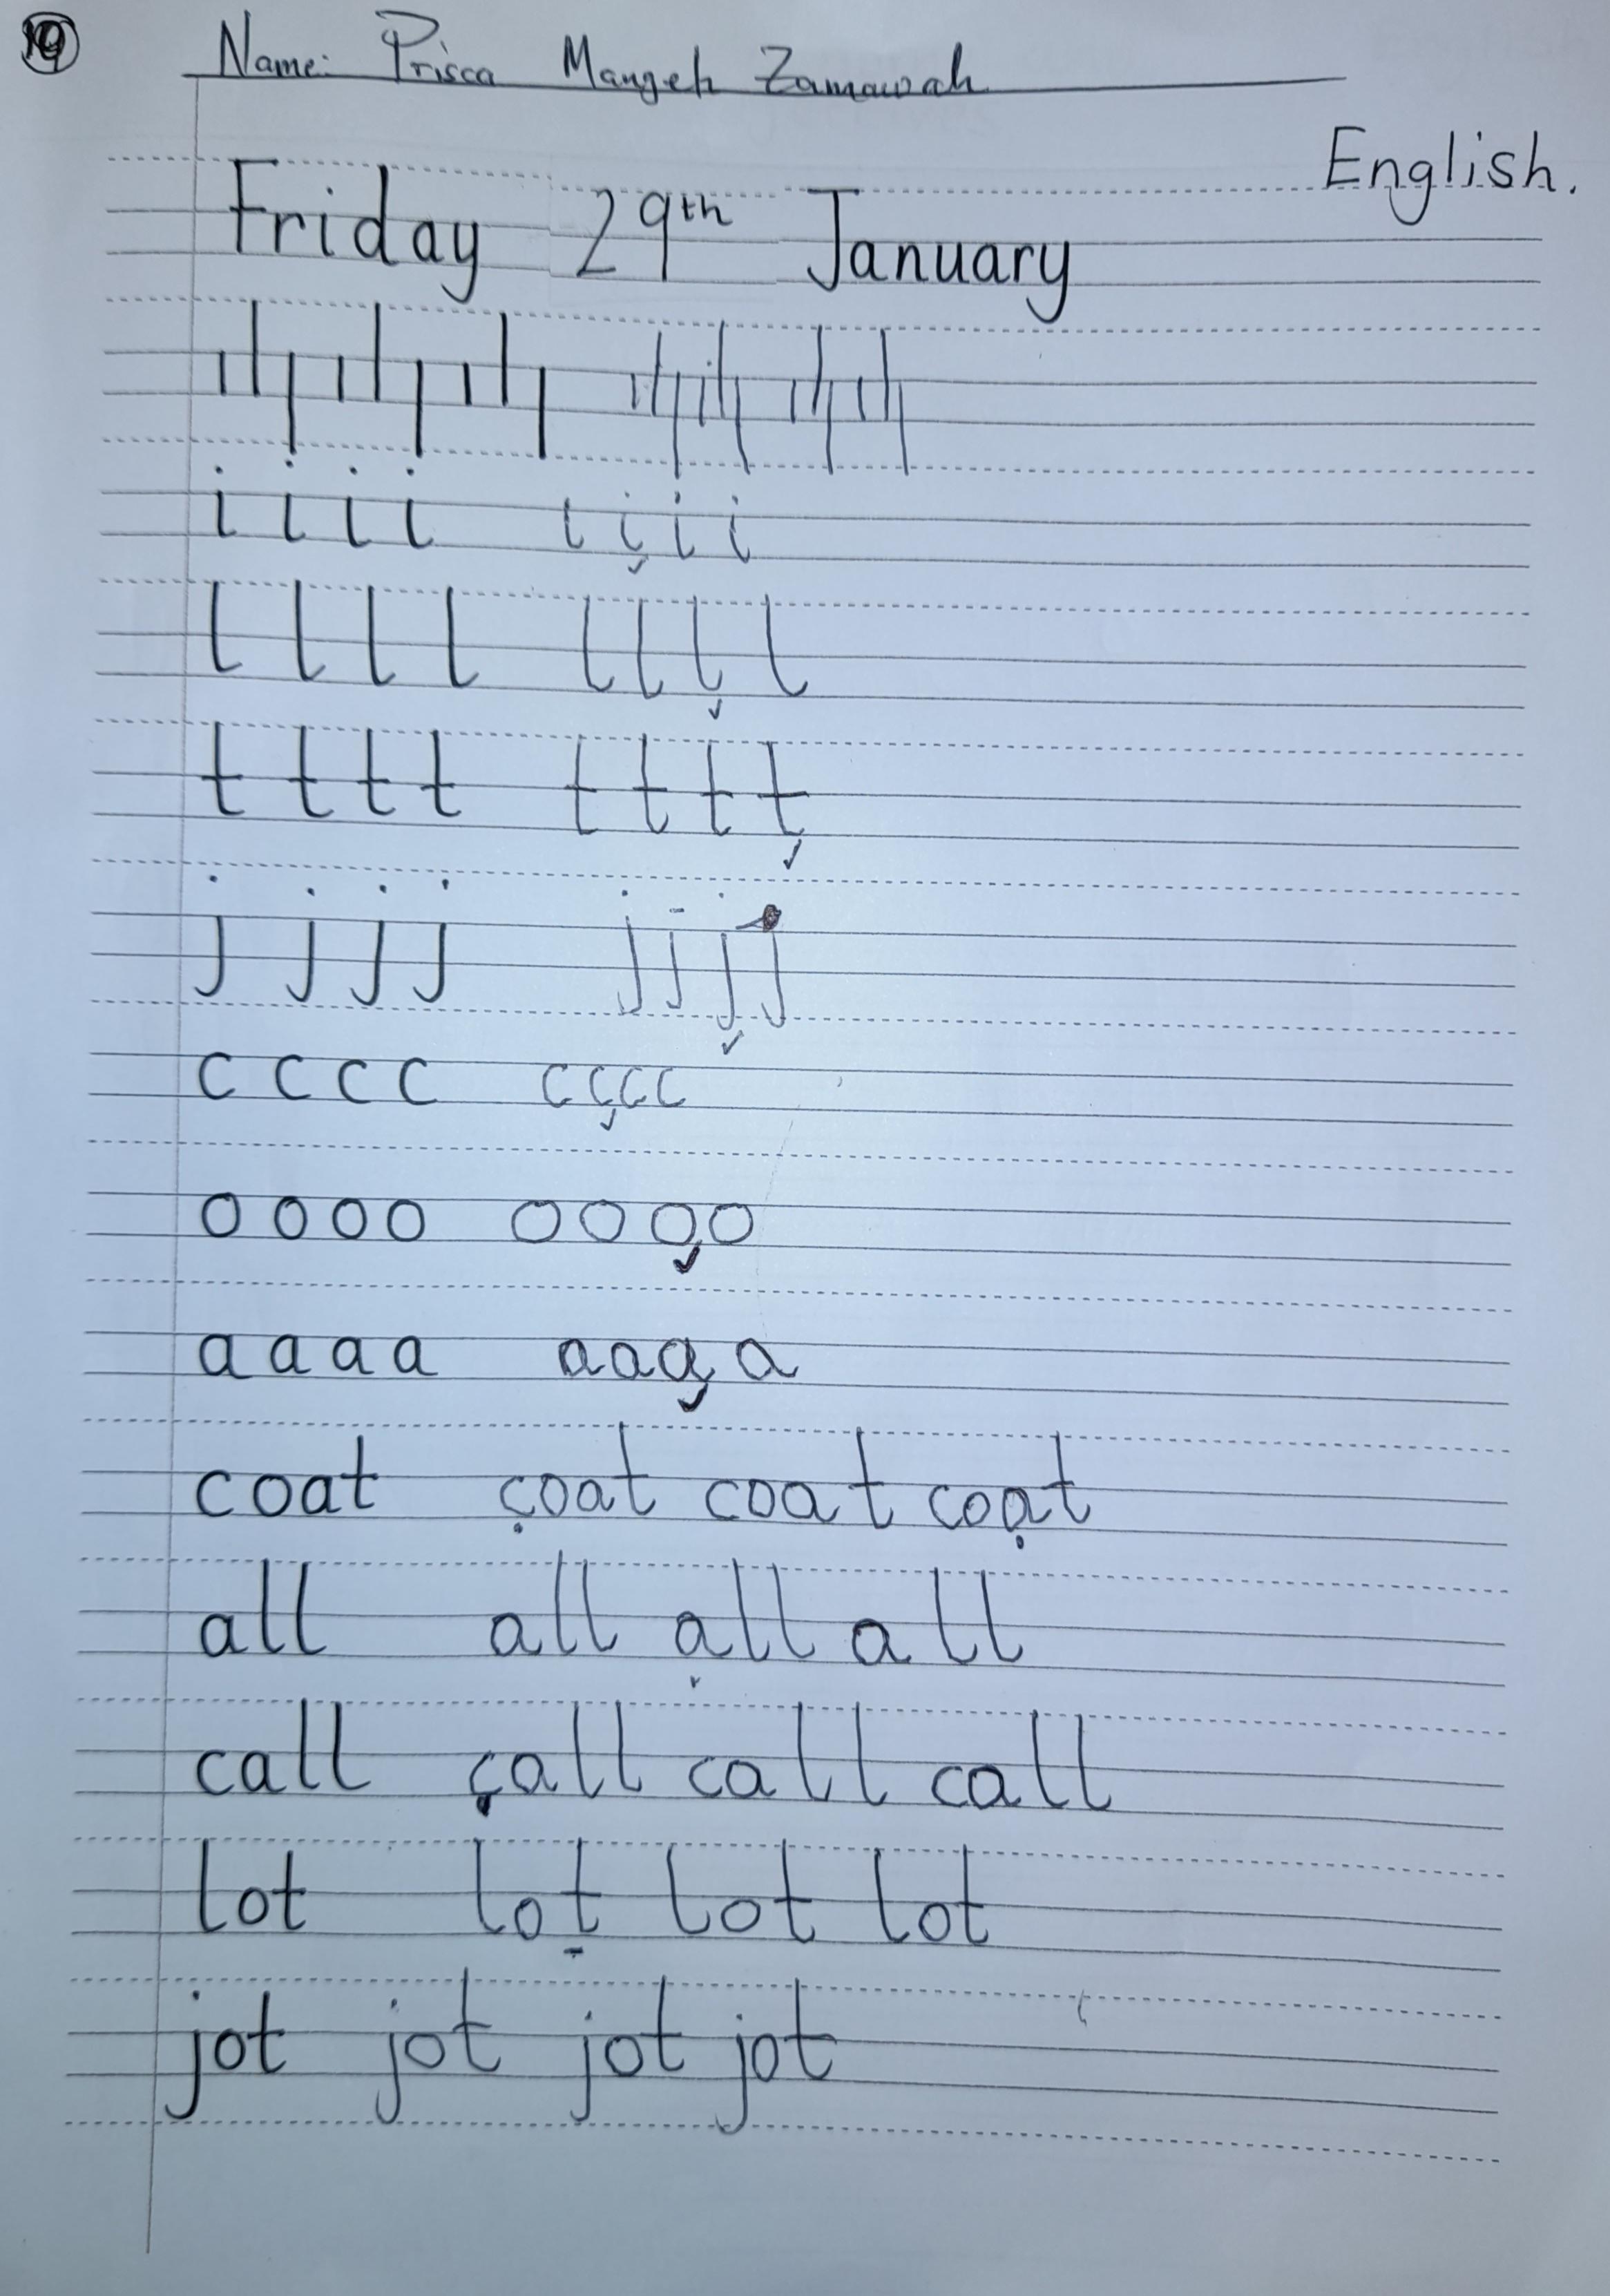 Name: Prisca Mangeh Zamawah
English.
Friday 29th January
i i i i ı i i i
l l l l l l l l
t t t t t t t t
j j j j j j j j
c c c c c c c c
o o o o o o o o
a a a a a a a a
coat coat coat coat
all all all all
call call call call
lot lot lot lot
jot jot jot jot